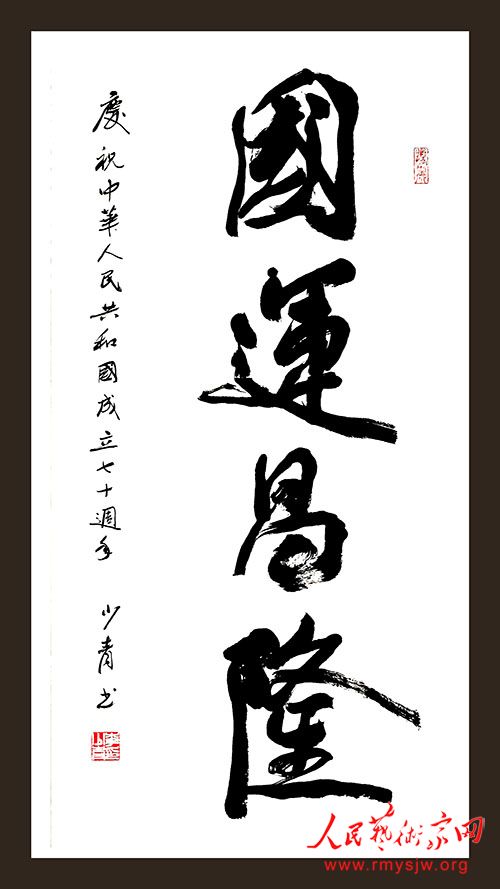 國運昌隆
慶祝中華人民共和國成立七十週年 少青书
人民藝術家网
www.rmysjw.org